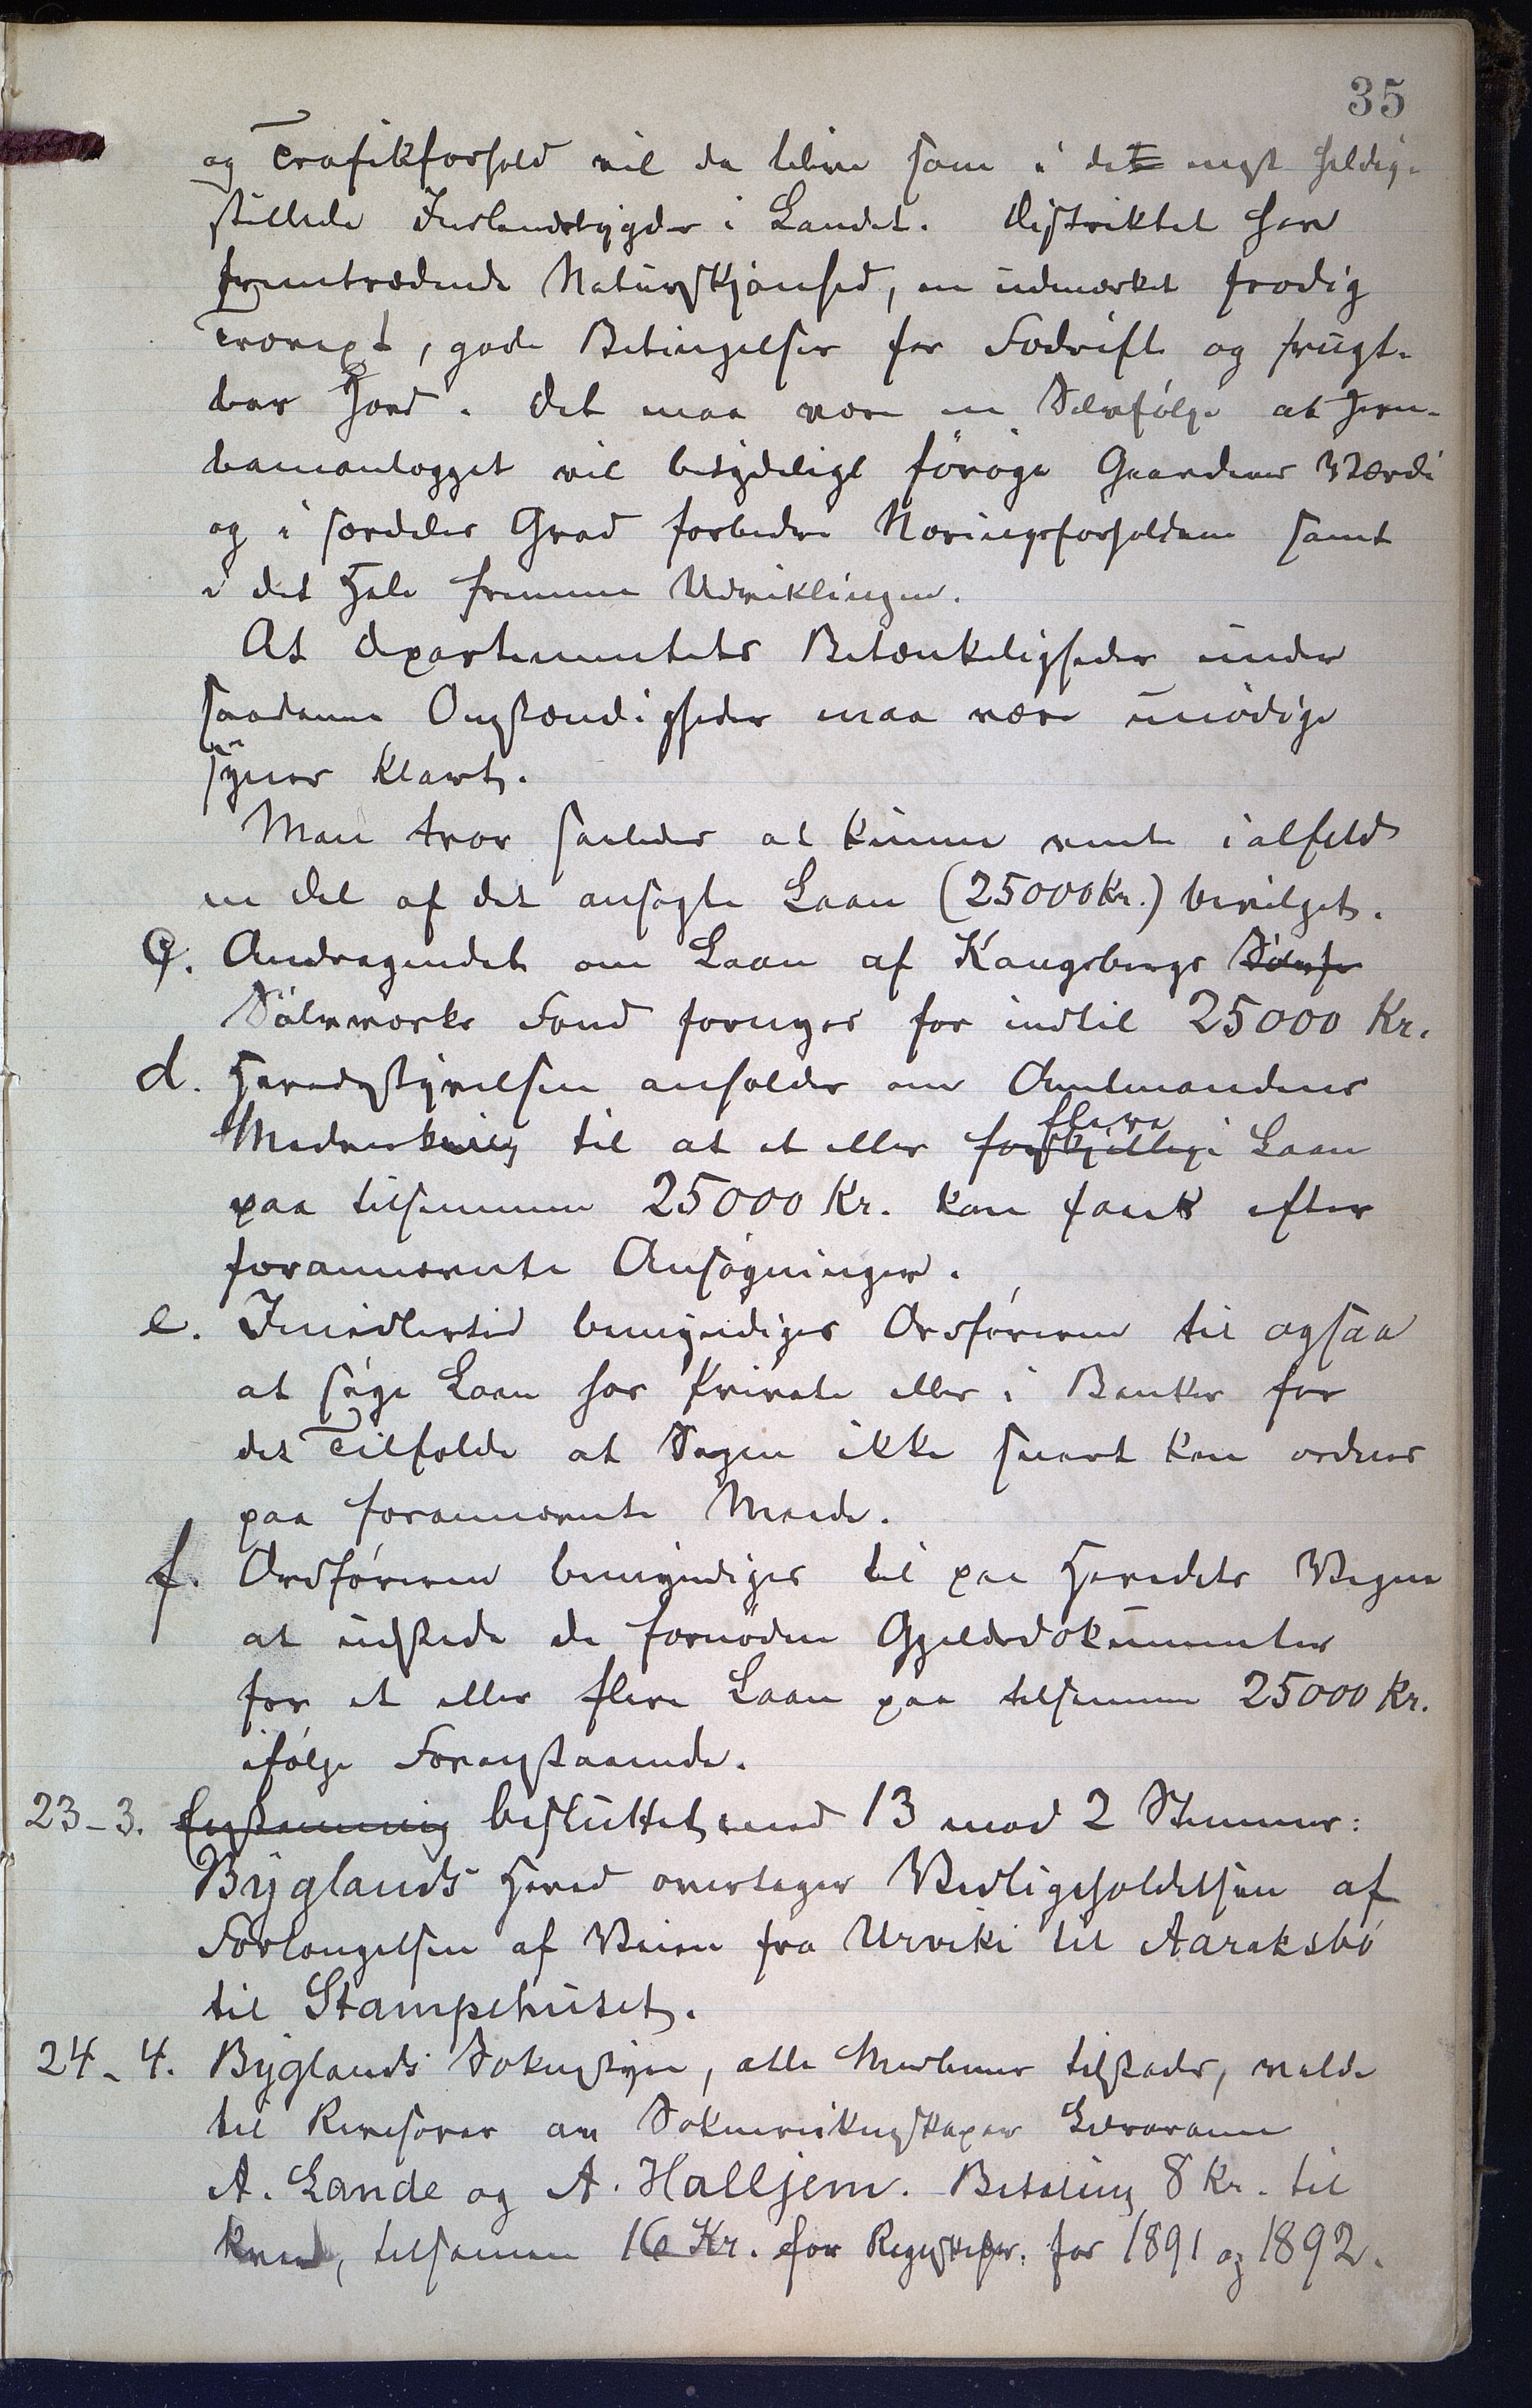 35
og Trafikforhold vil da blive som i det mest heldig-
stillede Indlandsbygder i Landet. Distriktet har
fremtrædende Naturskjønhed, en udmærket frodig
Trævext, gode Betingelser for Fædrift og frugt-
bar Jord. Det maa være en Selvfølge at Jern-
baneanlægget vil betydeligt forøge Gaardenes Værdi
og i særdeles Grad forbedre Næringsforholdene samt
i det Hele fremme Udviklingen.
At Departementets Betænkeligheder under
saadanne Omstændigheder maa være unødige
synes klart.
Man tror saaledes at kunne vente ialfald
en Del af det ansøgte Laan (25000 Kr.) bevilget.
c. Andragendet om Laan af Kongsbergs Sølvfo
Sølvværks Fond fornyes for indtil 25000 Kr.
d. Heredsstyrelsen anholder om Amtmandens
flere
Medvirkning til at et eller forskjellige Laan
paa tilsammen 25000 Kr. kan faaes efter
forannævnte Ansøgninger.
e. Imidlertid bemyndiges Ordføreren til ogsaa
at søge Laan hos Private eller i Banker for
det Tilfælde at Sagen ikke snart kan ordnes
paa forannævnte Maade.
f. Ordføreren bemyndiges til paa Heredets Vegne
at udstede de fornødne Gjeldsdokumenter
for et eller flere Laan paa tilsammen 25000 Kr.
ifølge Foranstaaende.
23-3. Enstemmig besluttet med 13 mod 2 Stemmer:
Byglands Hered overtager Vedligeholdelsen af
Forlængelsen af Veien fra Urviki til Aaraksbø
til Stampehuset.
24-4. Byglands Soknestyre, alle Medlemer tilstades, valde
til Revisorar av Soknereikneskapar Lærarane
A. Lande og A. Halljem. Betaling 8 Kr. til
kvar, tilsaman 16 Kr. for Regnskaper. for 1891 og 1892.